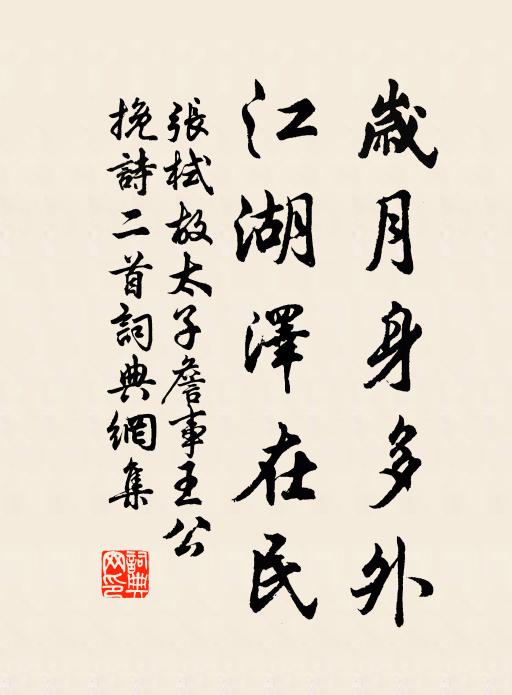 歲月身多外
江湖澤在民
張栻故太子詹事王公
挽詩二首詞典網集
詞典
网印